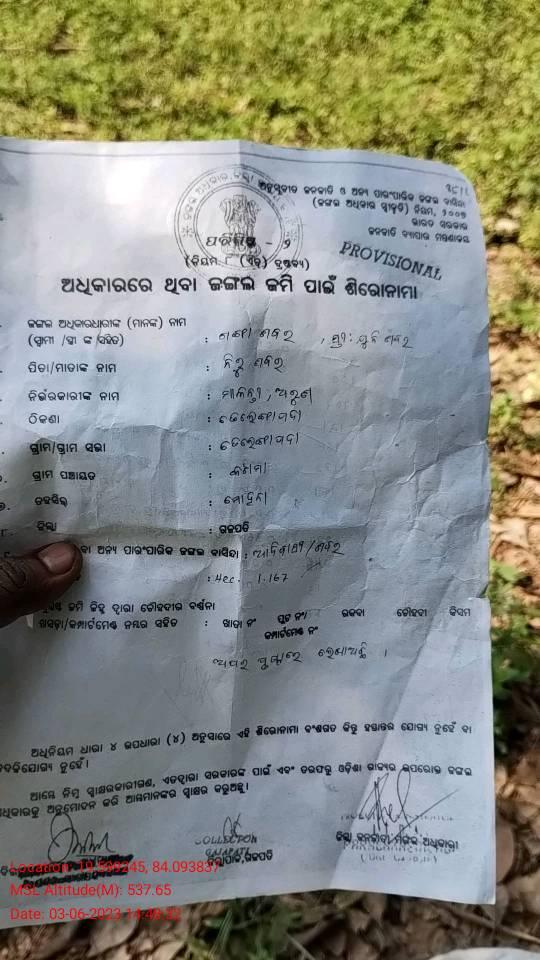 ୨୮୧୧
ଅନୁସୂଚୀତ ଜନଜାତି ଓ ଅନ୍ୟ ପାରଂପାରିକ ଜଙ୍ଗଲ ବାସିନ୍ଦା
(ଜଙ୍ଗଲ ଅଧିକାର ସ୍ୱୀକୃତି) ନିୟମ, ୨୦୦୭
ଭାରତ ସରକାର
ଜନଜାତି ବ୍ୟାପାର ମନ୍ତ୍ରଣାଳୟ
PROVISIONAL
ପରିଶିଷ୍ଟ - ୨
(ନିୟମ ୮ (ଏଚ୍) ଦ୍ରଷ୍ଟବ୍ୟ)
ଅଧିକାରରେ ଥିବା ଜଙ୍ଗଲ ଜମି ପାଇଁ ଶିରୋନାମା
ଜଙ୍ଗଲ ଅଧିକାରଧାରୀଙ୍କ (ମାନଙ୍କ) ନାମ
(ସ୍ୱାମୀ /ସ୍ତ୍ରୀ ଙ୍କ ସହିତ) : ଶବର , ସ୍ତ୍ରୀ : ଶବର
ପିତା/ମାତାଙ୍କ ନାମ : ଶବର
ନିର୍ଭରକାରୀଙ୍କ ନାମ : ମାଳତୀ, ଅରୁଣ
ଠିକଣା :
ଗ୍ରାମ/ଗ୍ରାମ ସଭା :
ଗ୍ରାମ ପଞ୍ଚାୟତ :
୭. ତହସିଲ : ମୋହନା
୮. ଜିଲ୍ଲା : ଗଜପତି
ବା ଅନ୍ୟ ପାରଂପାରିକ ଜଙ୍ଗଲ ବାସିନ୍ଦା : ଆଦିବାସୀ/ଶବର
: Hec. 1.167
ଜମି ଚିହ୍ନ ଦ୍ୱାରା ଚୌହଦୀର ବର୍ଣ୍ଣନା
ଖସଡ଼ା/କମ୍ପାର୍ଟମେଣ୍ଟ ନମ୍ବର ସହିତ : ଖାତା ନଂ ପ୍ଲଟ ନଂ/ ରକବା ଚୌହଦୀ କିସମ
କମ୍ପାର୍ଟମେଣ୍ଟ ନଂ
ଅପର ପୃଷ୍ଠାରେ ଲେଖାଅଛି ।
ଅଧିନିୟମ ଧାରା ୪ ଉପଧାରା (୪) ଅନୁସାରେ ଏହି ଶିରୋନାମା ବଂଶଗତ କିନ୍ତୁ ହସ୍ତାନ୍ତର ଯୋଗ୍ୟ ନୁହେଁ ବା
ବଦଳିଯୋଗ୍ୟ ନୁହେଁ ।
ଆମ୍ଭେ ନିମ୍ନ ସ୍ୱାକ୍ଷରକାରୀଗଣ, ଏତଦ୍ୱାରା ସରକାରଙ୍କ ପାଇଁ ଏବଂ ତରଫରୁ ଓଡ଼ିଶା ରାଜ୍ୟର ଉପରୋକ୍ତ ଜଙ୍ଗଲ
ଅଧିକାରକୁ ଅନୁମୋଦନ କରି ଆମ୍ଭମାନଙ୍କର ସ୍ୱାକ୍ଷର କରୁଅଛୁ ।
COLLECTOR
GAJAPATI
ଜିଲ୍ଲାପାଳ, ଗଜପତି
ଜିଲ୍ଲା ଜନଜାତି ମଙ୍ଗଳ ଅଧିକାରୀ
Location: 19.599245, 84.093837
MSL Altitude(M): 537.65
Date: 03-06-2023 14:48:22